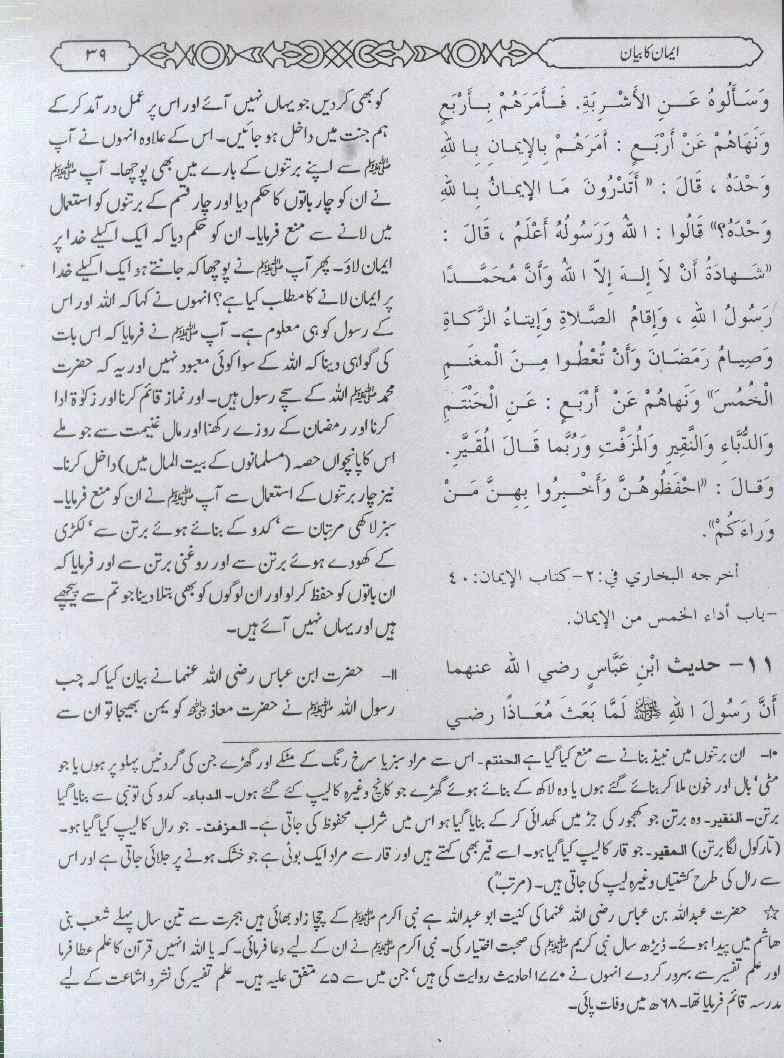 ایمان کا بیان
۳۹
وَسَأَلُوهُ عَنِ الأَشْرِبَةِ. فَأَمَرَهُمْ بِأَرْبَعٍ
وَنَهَاهُمْ عَنْ أَرْبَعٍ : أَمَرَهُمْ بِالإِيمَانِ بِاللهِ
وَحْدَهُ ، قَالَ : « أَتَدْرُونَ مَا الإِيمَانُ بِاللهِ
وَحْدَهُ؟» قَالُوا : اللهُ وَرَسُولُهُ أَعْلَمُ ، قَالَ :
«شَهَادَةُ أَنْ لاَ إِلهَ إِلاَّ اللهُ وَأَنَّ مُحَمَّدًا
رَسُولُ اللهِ ، وَإِقَامُ الصَّلاَةِ وَإِيتَاءُ الزَّكَاةِ
وَصِيَامُ رَمَضَانَ وَأَنْ تُعْطُوا مِنَ الْمَغْنَمِ
الْخُمُسَ» وَنَهَاهُمْ عَنْ أَرْبَعٍ : عَنِ الْحَنْتَمِ
وَالدُّبَّاءِ وَالنَّقِيرِ وَالْمُزَفَّتِ وَرُبَّمَا قَالَ الْمُقَيَّرِ.
وَقَالَ : «احْفَظُوهُنَّ وَأَخْبِرُوا بِهِنَّ مَنْ
وَرَاءَكُمْ».
أخرجه البخاري في: ٢- كتاب الإيمان: ٤٠
-باب أداء الخمس من الإيمان.
١١- حديث ابْنِ عَبَّاسٍ رضي الله عنهما
أَنَّ رَسُولَ اللهِ ﷺ لَمَّا بَعَثَ مُعَاذًا رضي
کو بھی کر دیں جو یہاں نہیں آئے اور اس پر عمل درآمد کر کے
ہم جنت میں داخل ہو جائیں۔ اس کے علاوہ انہوں نے آپ
ﷺ سے اپنے برتنوں کے بارے میں بھی پوچھا۔ آپ ﷺ
نے ان کو چار باتوں کا حکم دیا اور چار قسم کے برتنوں کو استعمال
میں لانے سے منع فرمایا۔ ان کو حکم دیا کہ ایک اکیلے خدا پر
ایمان لاؤ۔ پھر آپ ﷺ نے پوچھا کہ جانتے ہو ایک اکیلے خدا
پر ایمان لانے کا مطلب کیا ہے؟ انہوں نے کہا کہ اللہ اور اس
کے رسول کو ہی معلوم ہے۔ آپ ﷺ نے فرمایا کہ اس بات
کی گواہی دینا کہ اللہ کے سوا کوئی معبود نہیں اور یہ کہ حضرت
محمد ﷺ اللہ کے سچے رسول ہیں۔ اور نماز قائم کرنا اور زکوٰۃ ادا
کرنا اور رمضان کے روزے رکھنا اور مال غنیمت سے جو ملے
اس کا پانچواں حصہ (مسلمانوں کے بیت المال میں) داخل کرنا۔
نیز چار برتنوں کے استعمال سے آپ ﷺ نے ان کو منع فرمایا۔
سبز لاکھی مرتبان سے‘ کدو کے بنائے ہوئے برتن سے‘ لکڑی
کے کھودے ہوئے برتن سے اور روغنی برتن سے اور فرمایا کہ
ان باتوں کو حفظ کر لو اور ان لوگوں کو بھی بتلا دینا جو تم سے پیچھے
ہیں اور یہاں نہیں آئے ہیں۔
۱۱- حضرت ابن عباس رضی اللہ عنہما نے بیان کیا کہ جب
رسول اللہ ﷺ نے حضرت معاذ رضی اللہ عنہ کو یمن بھیجا تو ان سے
۱۰- ان برتنوں میں نبیذ بنانے سے منع کیا گیا ہے الحنتم۔ اس سے مراد سبز یا سرخ رنگ کے مٹکے اور گھڑے جن کی گردنیں پہلو پر ہوں یا جو
مٹی‘ بال اور خون ملا کر بنائے گئے ہوں یا وہ لاکھ کے بنائے ہوئے گھڑے جو کانچ وغیرہ کا لیپ کئے گئے ہوں۔ الدباء۔ کدو کی تونبی سے بنایا گیا
برتن۔ النقیر۔ وہ برتن جو کھجور کی جڑ میں کھدائی کر کے بنایا گیا ہو اس میں شراب محفوظ کی جاتی ہے۔ المزفت۔ جو رال کا لیپ کیا گیا ہو۔
(تارکول لگا برتن) المقیر۔ جو قار کا لیپ کیا گیا ہو۔ اسے قیر بھی کہتے ہیں اور قار سے مراد ایک بوٹی ہے جو خشک ہونے پر جلائی جاتی ہے اور اس
سے رال کی طرح کشتیاں وغیرہ لیپ کی جاتی ہیں۔ (مرتبؒ)
☆ حضرت عبداللہ بن عباس رضی اللہ عنہما کی کنیت ابو عبداللہ ہے نبی اکرم ﷺ کے چچا زاد بھائی ہیں ہجرت سے تین سال پہلے شعب بنی
ھاشم میں پیدا ہوئے۔ ڈیڑھ سال نبی کریم ﷺ کی صحبت اختیار کی۔ نبی اکرم ﷺ نے ان کے لیے دعا فرمائی۔ کہ یا اللہ انہیں قرآن کا علم عطا فرما
اور علم تفسیر سے بہرور کر دے انہوں نے ۱۷۷۰ احادیث روایت کی ہیں‘ جن میں سے ۷۵ متفق علیہ ہیں۔ علم تفسیر کی نشر و اشاعت کے لیے
مدرسہ قائم فرمایا تھا۔ ۶۸ھ میں وفات پائی۔